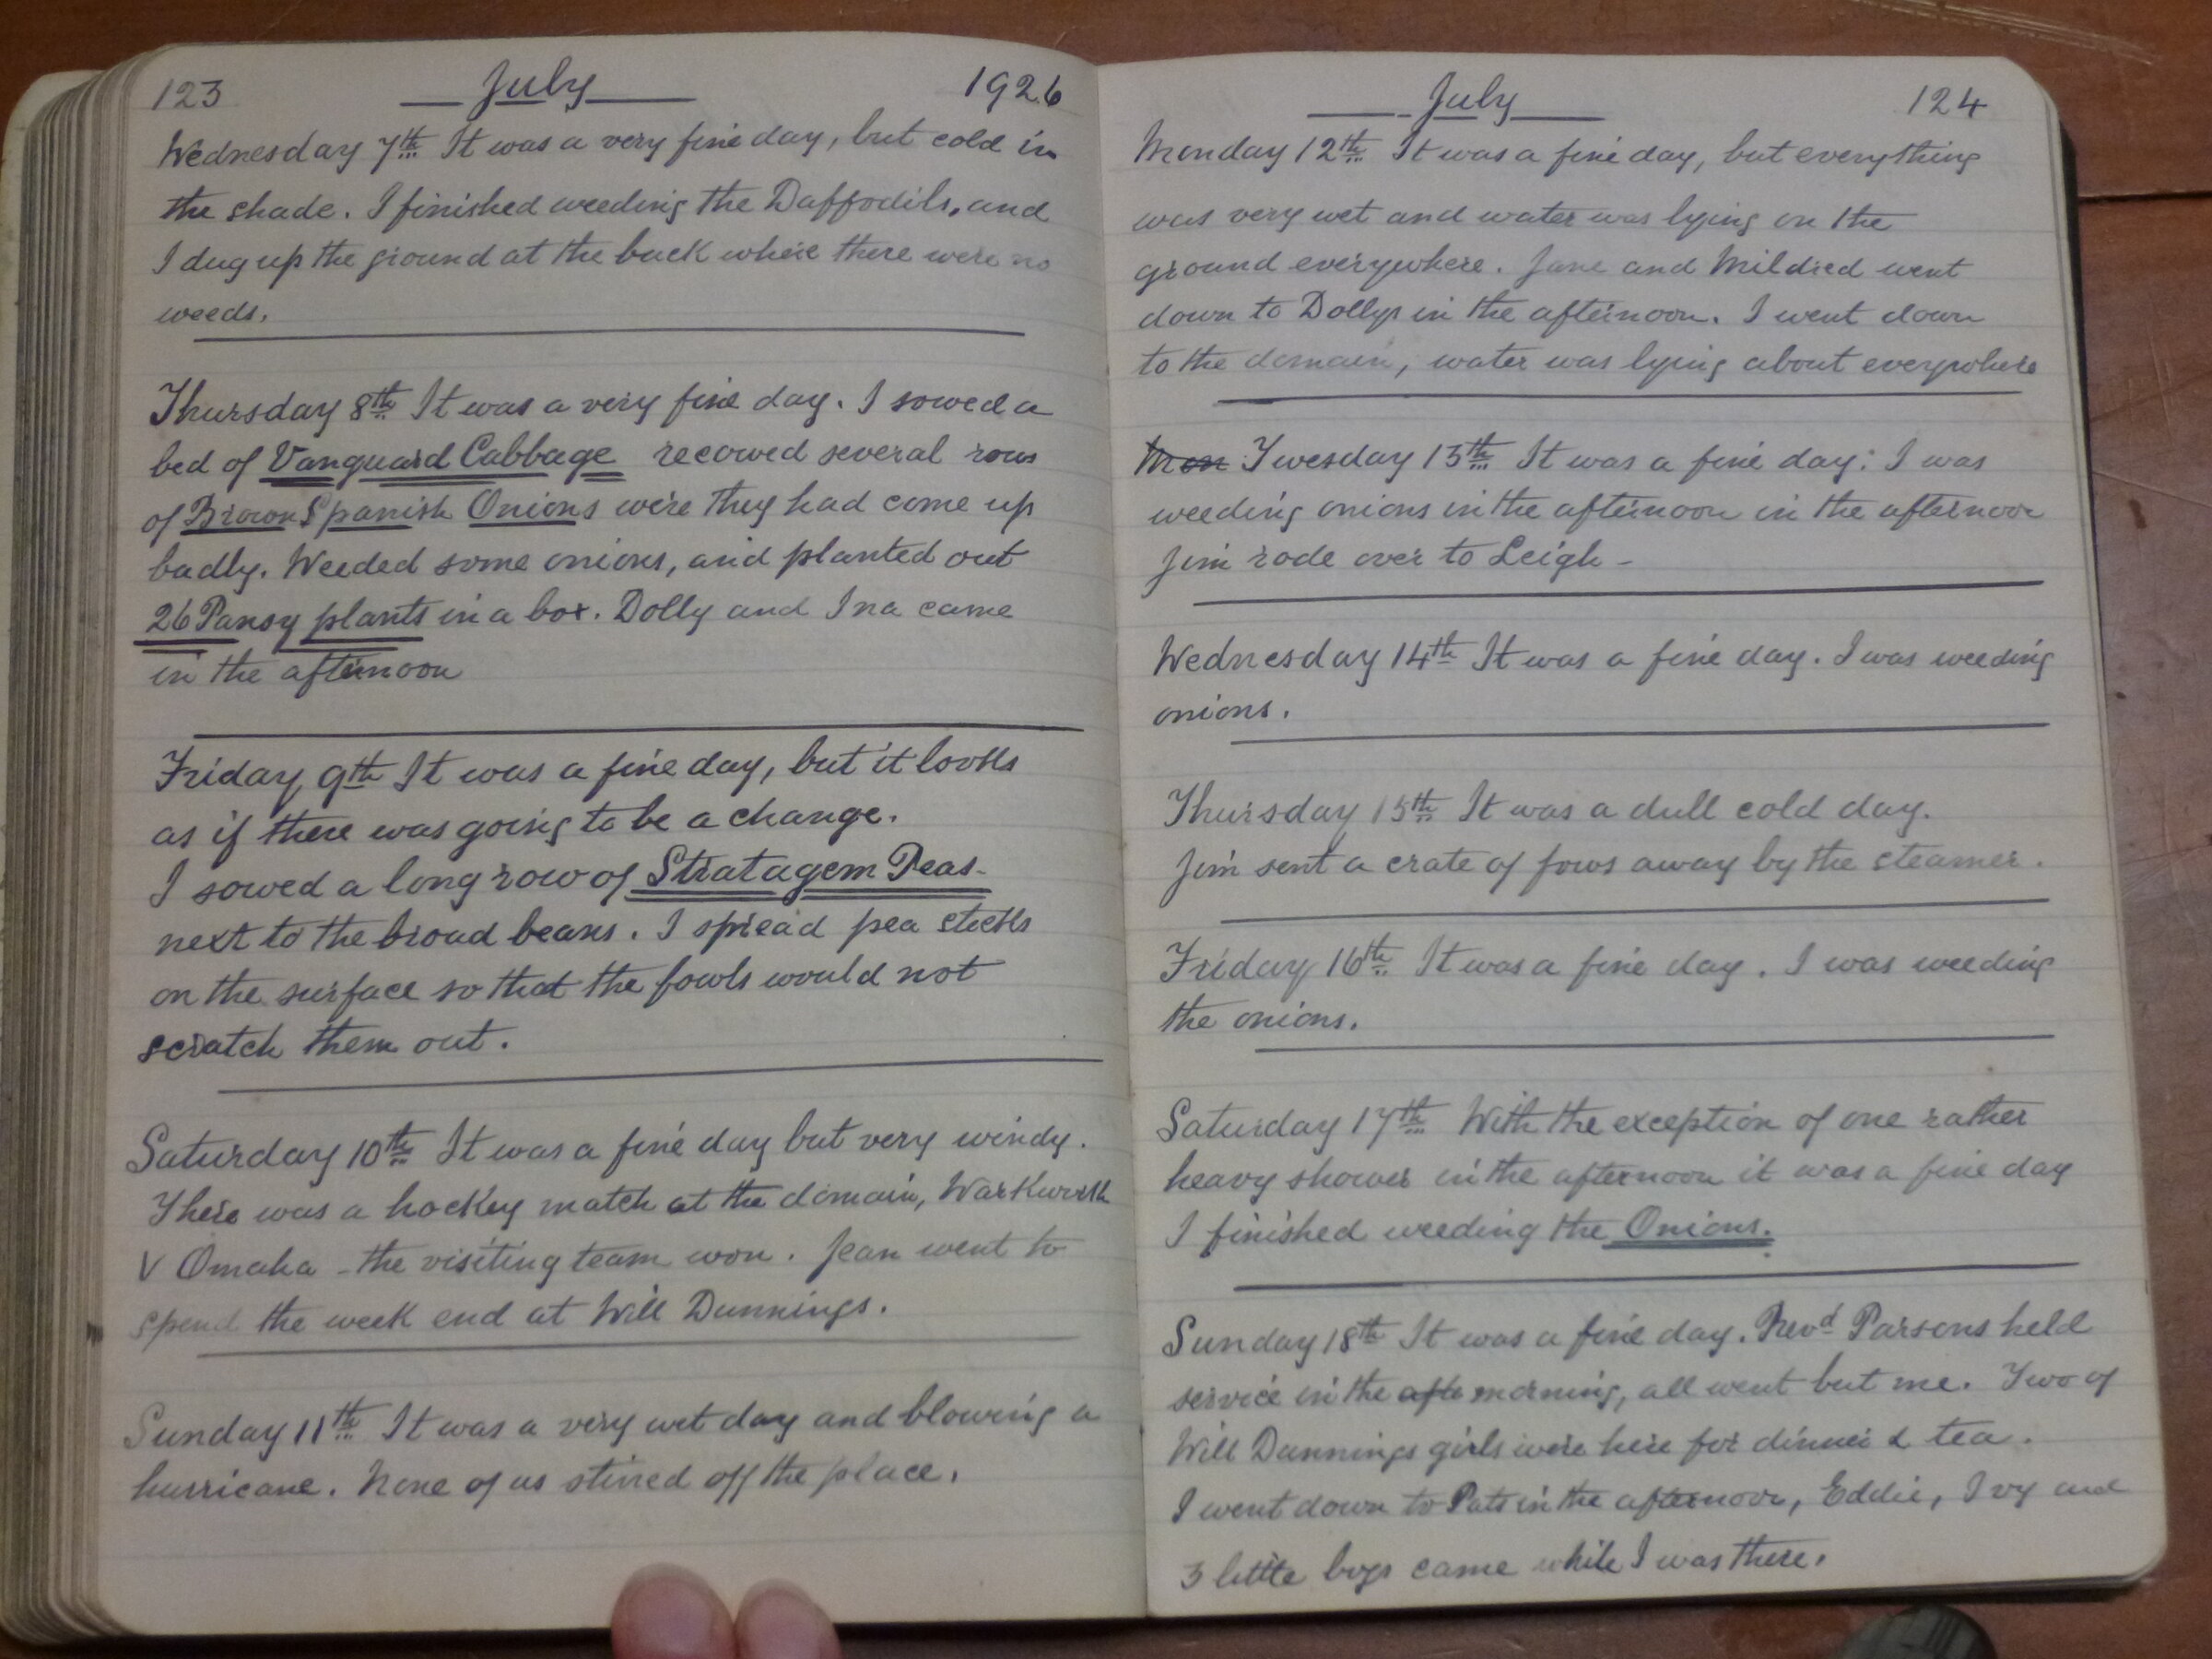 123 July 1926
Wednesday 7th It was a very fine day, but cold in
the shade. I finished weeding the Daffodils, and
I dug up the ground at the back where there were no
weeds.
Thursday 8th It was a very fine day. I sowed a
bed of Vanguard Cabbage resowed several rows
of Brown Spanish Onions were they had come up
badly. Weeded some onions, and planted out
26 Pansy plants in a box. Dolly and Ina came
in the afternoon
Friday 9th It was a fine day, but it looks
as if there was going to be a change.
I sowed a long row of Stratagem Peas-
next to the broad beans. I spread pea sticks
on the surface so that the fowls would not
scratch them out.
Saturday 10th It was a fine day but very windy.
There was a hockey match at the domain, Warkworth
V Omaha - the visiting team won. Jean went to
spend the week end at Will Dunnings.
Sunday 11th It was a very wet day and blowing a
hurricane. None of us stirred off the place.
July 124
Monday 12th It was a fine day, but everything
was very wet and water was lying on the
ground everywhere. Jane and Mildred went
down to Dollys in the afternoon. I went down
to the domain, water was lying about everywhere
Mon Tuesday 13th It was a fine day: I was
weeding onions in the afternoon in the afternoon
Jim rode over to Leigh -
Wednesday 14th It was a fine day. I was weeding
onions.
Thursday 15th It was a dull cold day.
Jim sent a crate of fows away by the steamer.
Friday 16th It was a fine day. I was weeding
the onions.
Saturday 17th With the exception of one rather
heavy shower in the afternoon it was a fine day
I finished weeding the Onions.
Sunday 18th It was a fine day. Revd Parsons held
service in the afte morning, all went but me. Two of
Will Dunnings girls were here for dinner & tea.
I went down to Pats in the afternoon, Eddie, Ivy and
3 little boys came while I was there.